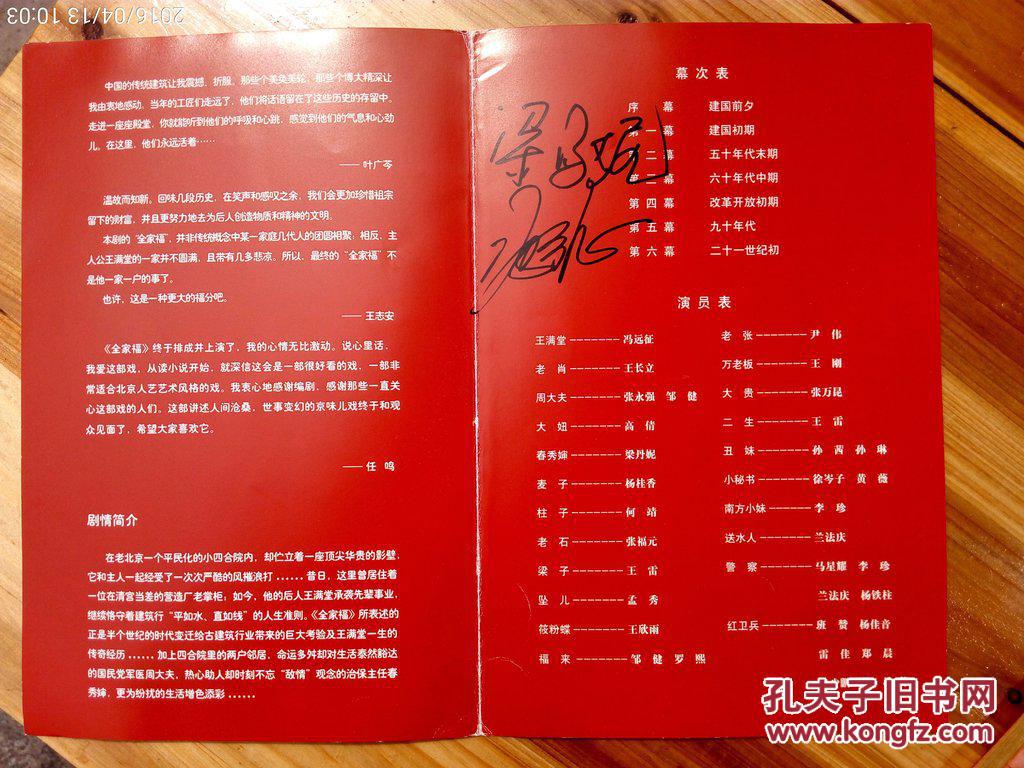 2016/04/13 10:03
中国的传统建筑让我震撼，折服，那些个美奂美轮，那些个博大精深让
我由衷地感动，当年的工匠们走远了，他们将话语留在了这些历史的存留中。
走进一座座殿堂，你就能听到他们的呼吸和心跳，感觉到他们的气息和心劲
儿。在这里，他们永远活着……
——叶广芩
温故而知新。回味几段历史，在笑声和感叹之余，我们会更加珍惜祖宗
留下的财富，并且更努力地去为后人创造物质和精神的文明。
本剧的“全家福”，并非传统概念中某一家庭几代人的团圆相聚；相反，主
人公王满堂的一家并不圆满，且带有几多悲凉。所以，最终的“全家福”不
是他一家一户的事了。
也许，这是一种更大的福分吧。
——王志安
《全家福》终于排成并上演了，我的心情无比激动。说心里话，
我爱这部戏，从读小说开始，就深信这会是一部很好看的戏，一部非
常适合北京人艺艺术风格的戏。我衷心地感谢编剧，感谢那些一直关
心这部戏的人们。这部讲述人间沧桑，世事变幻的京味儿戏终于和观
众见面了，希望大家喜欢它。
——任 鸣
剧情简介
在老北京一个平民化的小四合院内，却伫立着一座顶尖华贵的影壁，
它和主人一起经受了一次次严酷的风摧浪打......昔日，这里曾居住着
一位在清宫当差的营造厂老掌柜；如今，他的后人王满堂承袭先辈事业，
继续恪守着建筑行“平如水、直如线”的人生准则。《全家福》所表述的
正是半个世纪的时代变迁给古建筑行业带来的巨大考验及王满堂一生的
传奇经历......加上四合院里的两户邻居，命运多舛却对生活泰然豁达
的国民党军医周大夫，热心助人却时刻不忘“敌情”观念的治保主任春
秀婶，更为纷扰的生活增色添彩......
幕次表
序 幕 建国前夕
第一幕 建国初期
二幕 五十年代末期
第三幕 六十年代中期
第四幕 改革开放初期
第五幕 九十年代
第六幕 二十一世纪初
梁丹妮
冯远征
演员表
王满堂-------冯远征
老 尚-------王长立
周大夫-------张永强 邹 健
大 妞-------高 倩
春秀婶-------梁丹妮
麦 子-------杨桂香
柱 子-------何 靖
老 石-------张福元
梁 子-------王 雷
坠 儿-------孟 秀
筱粉蝶-------王欣雨
福 来-------邹 健 罗 熙
老 张-------尹 伟
万老板-------王 刚
大 贵-------张万昆
二 生-------王 雷
丑 妹-------孙 茜 孙 琳
小秘书-------徐岑子 黄 薇
南方小妹-------李 珍
送水人-------兰法庆
警 察-------马星耀 李 珍
兰法庆 杨铁柱
红卫兵-------班 赞 杨佳音
雷 佳 郑 晨
孔夫子旧书网
www.kongfz.com